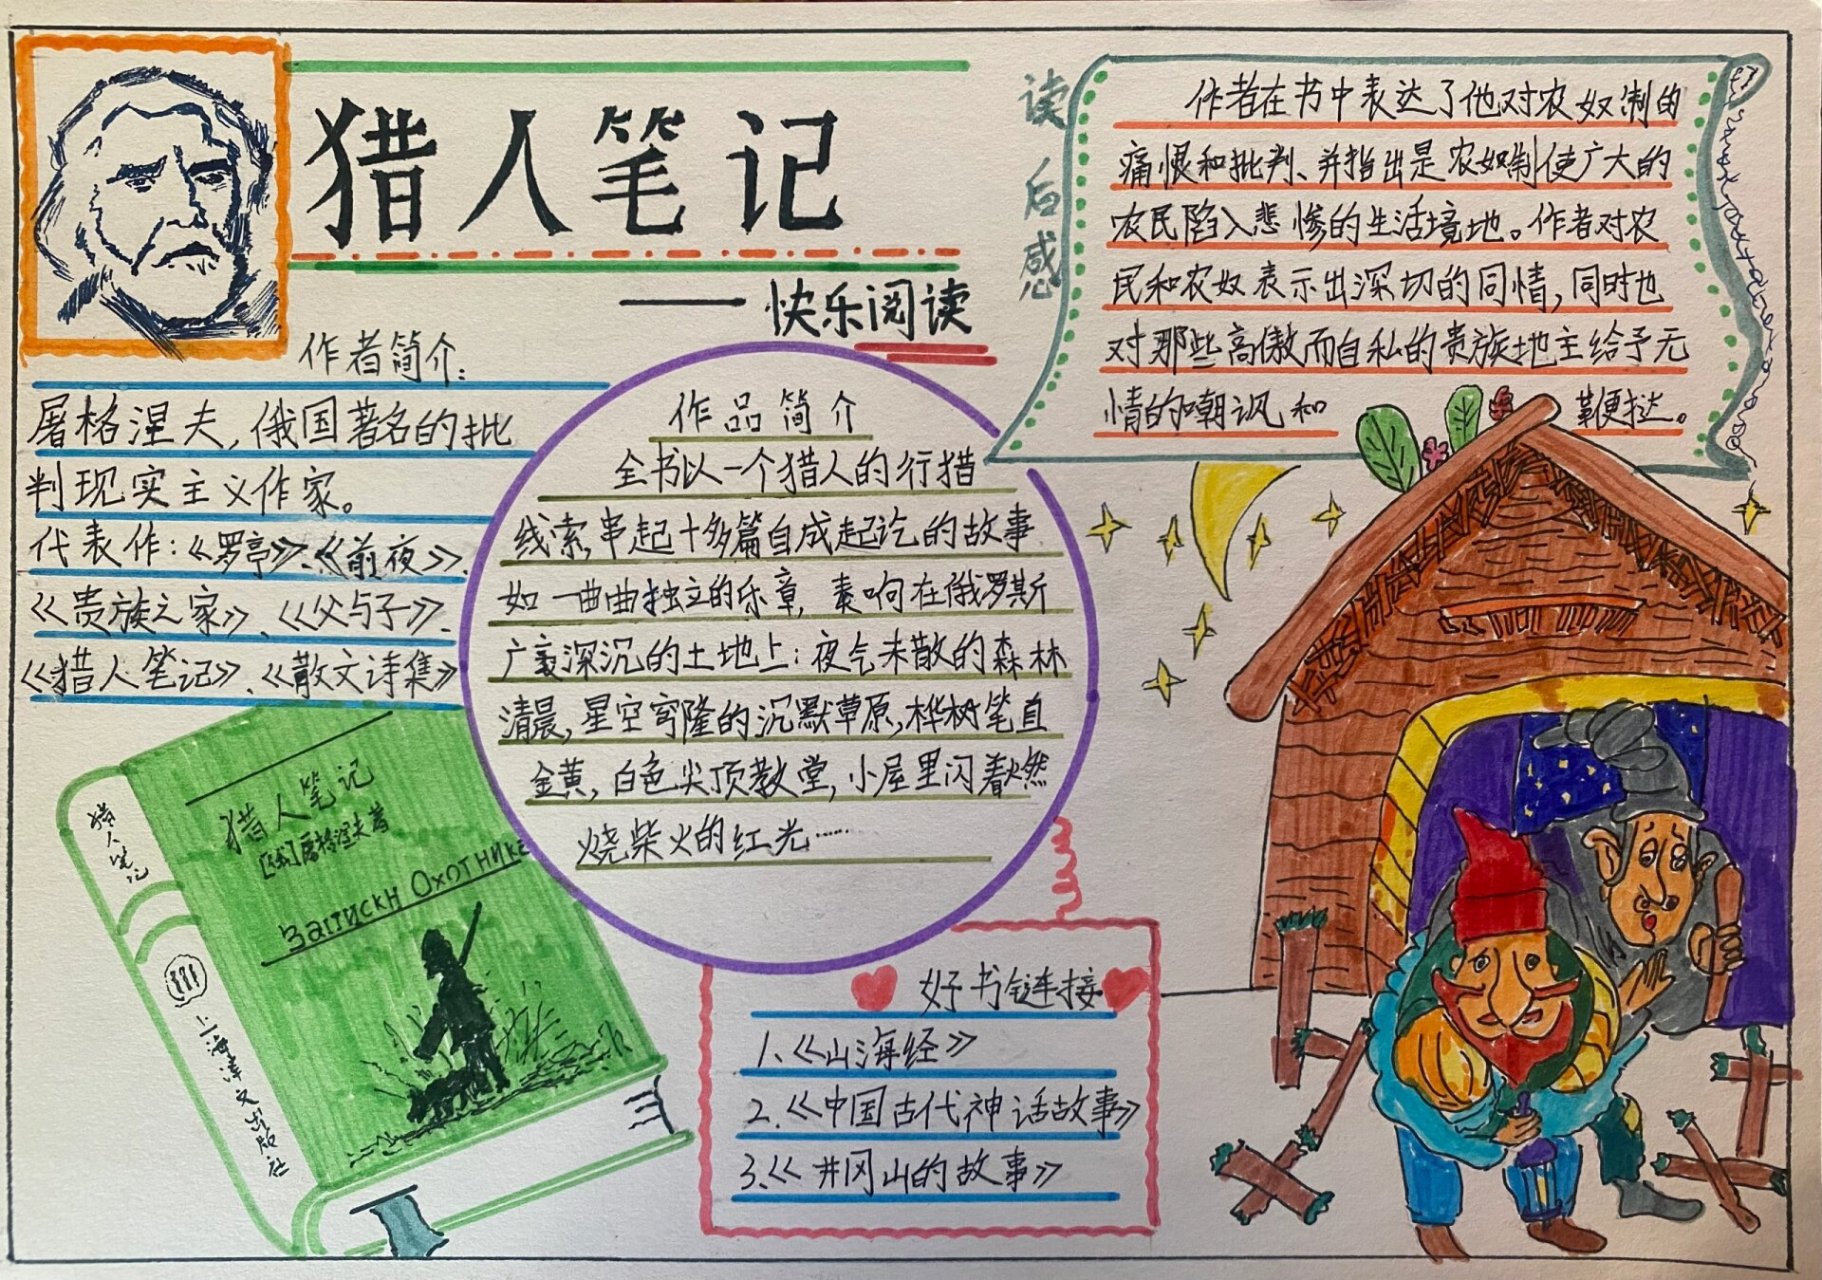 猎人笔记
——快乐阅读
作者简介：
屠格涅夫，俄国著名的批
判现实主义作家。
代表作：《罗亭》、《前夜》、
《贵族之家》、《父与子》、
《猎人笔记》、《散文诗集》
作品简介
全书以一个猎人的行猎
线索，串起十多篇自成起讫的故事
如一曲曲独立的乐章，奏响在俄罗斯
广袤深沉的土地上：夜气未散的森林
清晨，星空穹隆的沉默草原，桦树笔直
金黄，白色尖顶教堂，小屋里闪着燃
烧柴火的红光……
读后感
作者在书中表达了他对农奴制的
痛恨和批判、并指出是农奴制使广大的
农民陷入悲惨的生活境地。作者对农
民和农奴表示出深切的同情，同时也
对那些高傲而自私的贵族地主给予无
情的嘲讽和 鞭挞。
猎人笔记
[俄]屠格涅夫著
Записки Охотника
猎人笔记
上海译文出版社
好书链接
1、《山海经》
2、《中国古代神话故事》
3、《井冈山的故事》